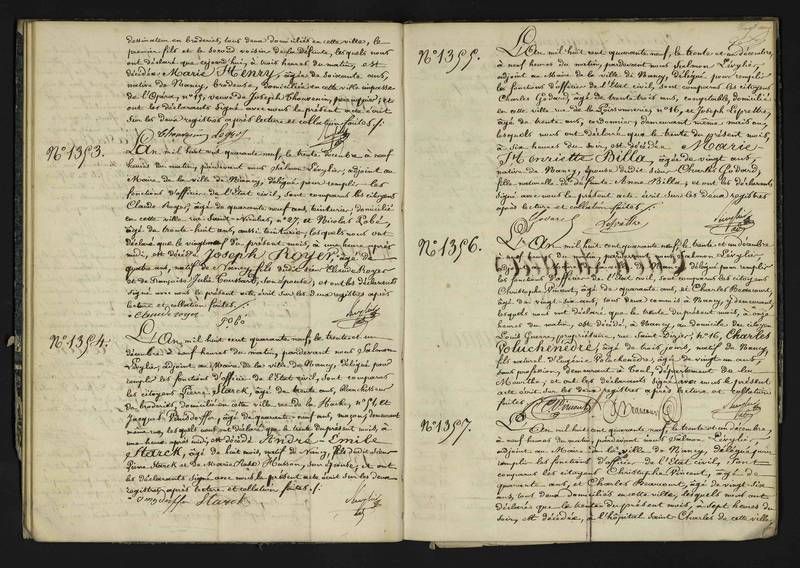 dessinateur en broderies, tous deux domiciliés en cette ville, le
premier fils et le second voisin de la défunte, lesquels nous
ont déclaré que cejourd'hui, à trois heures du matin, est
décédée Marie Henry, âgée de soixante ans,
native de Nancy, brodeuse, domiciliée en cette ville impasse
de l'Opéra, n° 15, veuve de Joseph Thouvenin,
ont les déclarants signé avec nous le présent acte écrit
sur les deux registres après lecture et collation faites ./.
Thouvenin
N° 1353.
L'An mil huit cent quarante neuf, le trente décembre à neuf
heures du matin, pardevant nous Salmon Lévylier, adjoint au
Maire de la ville de Nancy, délégué pour remplir les
fonctions d'officier de l'Etat civil, sont comparus les citoyens
Claude Royer, âgé de quarante neuf ans, teinturier, domicilié
en cette ville rue Saint-Nicolas, n° 27, et Nicolas Robé,
âgé de trente-huit ans, aussi teinturier, lesquels nous ont
déclaré que le vingt neuf du présent mois, à une heure après
midi, est décédé Joseph Royer, âgé de
quatre ans, natif de Nancy, fils dudit sieur Claude Royer
et de Françoise Julie Toussaint, son épouse; et ont les déclarants
signé avec nous le présent acte, écrit sur les deux registres après
lecture et collation faites ./.
Claude Royer
Robé
N° 1354.
L'An mil huit cent quarante neuf, le trente et un
décembre à neuf heures du matin, pardevant nous Salmon
Lévylier, adjoint au Maire de la ville de Nancy, délégué pour
remplir les fonctions d'officier de l'Etat civil, sont comparus
les citoyens Pierre Starck, âgé de trente ans, blanchisseur
de broderies, domicilié en cette ville rue de la Hache, n° 54, et
Jacques âgé de quarante neuf ans, maçon, demeurant
même rue, lesquels nous ont déclaré que le trente du présent mois, à
une heure après midi, est décédé André-Emile
Starck, âgé de huit mois, natif de Nancy, fils dudit sieur
Pierre Starck et de Marie Husson, son épouse; et ont
les déclarants signé avec nous le présent acte écrit sur les deux
registres, après lecture et collation faites ./.
Starck
N° 1355.
L'An mil huit cent quarante neuf, le trente et un décembre,
à neuf heures du matin, pardevant nous Salmon Lévylier,
adjoint au Maire de la ville de Nancy, délégué pour remplir
les fonctions d'officier de l'Etat civil, sont comparus les citoyens
Charles Godard, âgé de trente trois ans, comptable, domicilié
en cette ville rue n° 16, et Joseph Lepretre,
âgé de trente ans, cordonnier, demeurant même maison,
lesquels nous ont déclaré que le trente du présent mois,
à six heures du soir, est décédée Marie-
Henriette Billa, âgée de vingt ans,
native de Nancy, épouse dudit sieur Charles Godard,
fille naturelle de défunte Anne Billa; et ont les déclarants
signé avec nous le présent acte écrit sur les deux registres
après lecture et collation faites ./.
Godard Lepretre
N° 1356.
L'An mil huit cent quarante neuf, le trente et un décembre
à neuf heures du matin, pardevant nous Salmon Lévylier,
adjoint au Maire de la ville de Nancy, délégué pour remplir
les fonctions d'officier de l'Etat civil, sont comparus les citoyens
Christophe Pincent, âgé de quarante ans, et Charles Beaucourt,
âgé de vingt-six ans, tous deux commis à Nancy, y demeurant,
lesquels nous ont déclaré que le trente du présent mois, à onze
heures du matin, est décédé, à Nancy, au domicile du citoyen
Louis Guerre, propriétaire, rue Saint-Dizier, n° 16, Charles
Poluchenède, âgé de huit jours, natif de Nancy,
fils naturel d'Eugénie Poluchenède, âgée de vingt un ans,
sans profession, demeurant à Toul, département de la
Meurthe, et ont les déclarants signé avec nous le présent
acte écrit sur les deux registres après lecture et collation
faites ./.
N° 1357.
L'An mil huit cent quarante neuf, le trente et un décembre,
à neuf heures du matin, pardevant nous Salmon Lévylier,
adjoint au Maire de la ville de Nancy, délégué pour
remplir les fonctions d'officier de l'Etat civil, sont
comparus les citoyens Christophe Pincent, âgé de
quarante ans, et Charles Beaucourt, âgé de vingt six
ans, tous deux domiciliés en cette ville, lesquels nous ont
déclaré que le trente du présent mois, à sept heures du
soir, est décédée, à l'hôpital Saint-Charles de cette ville,